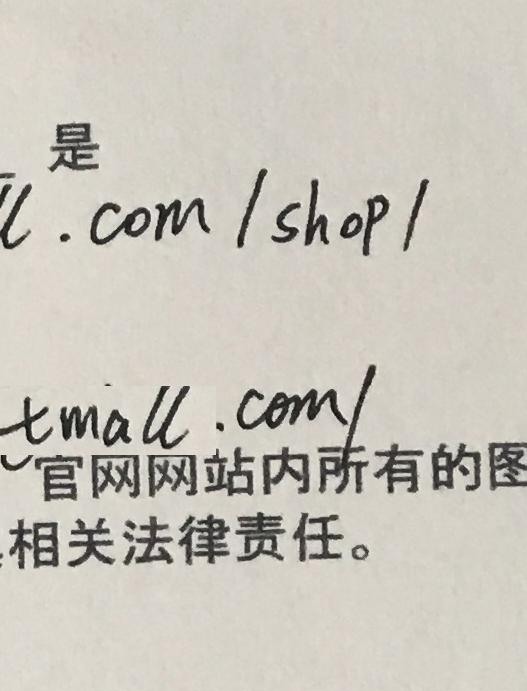 是
ll.com/shop/
tmall.com/
官网网站内所有的图
相关法律责任。